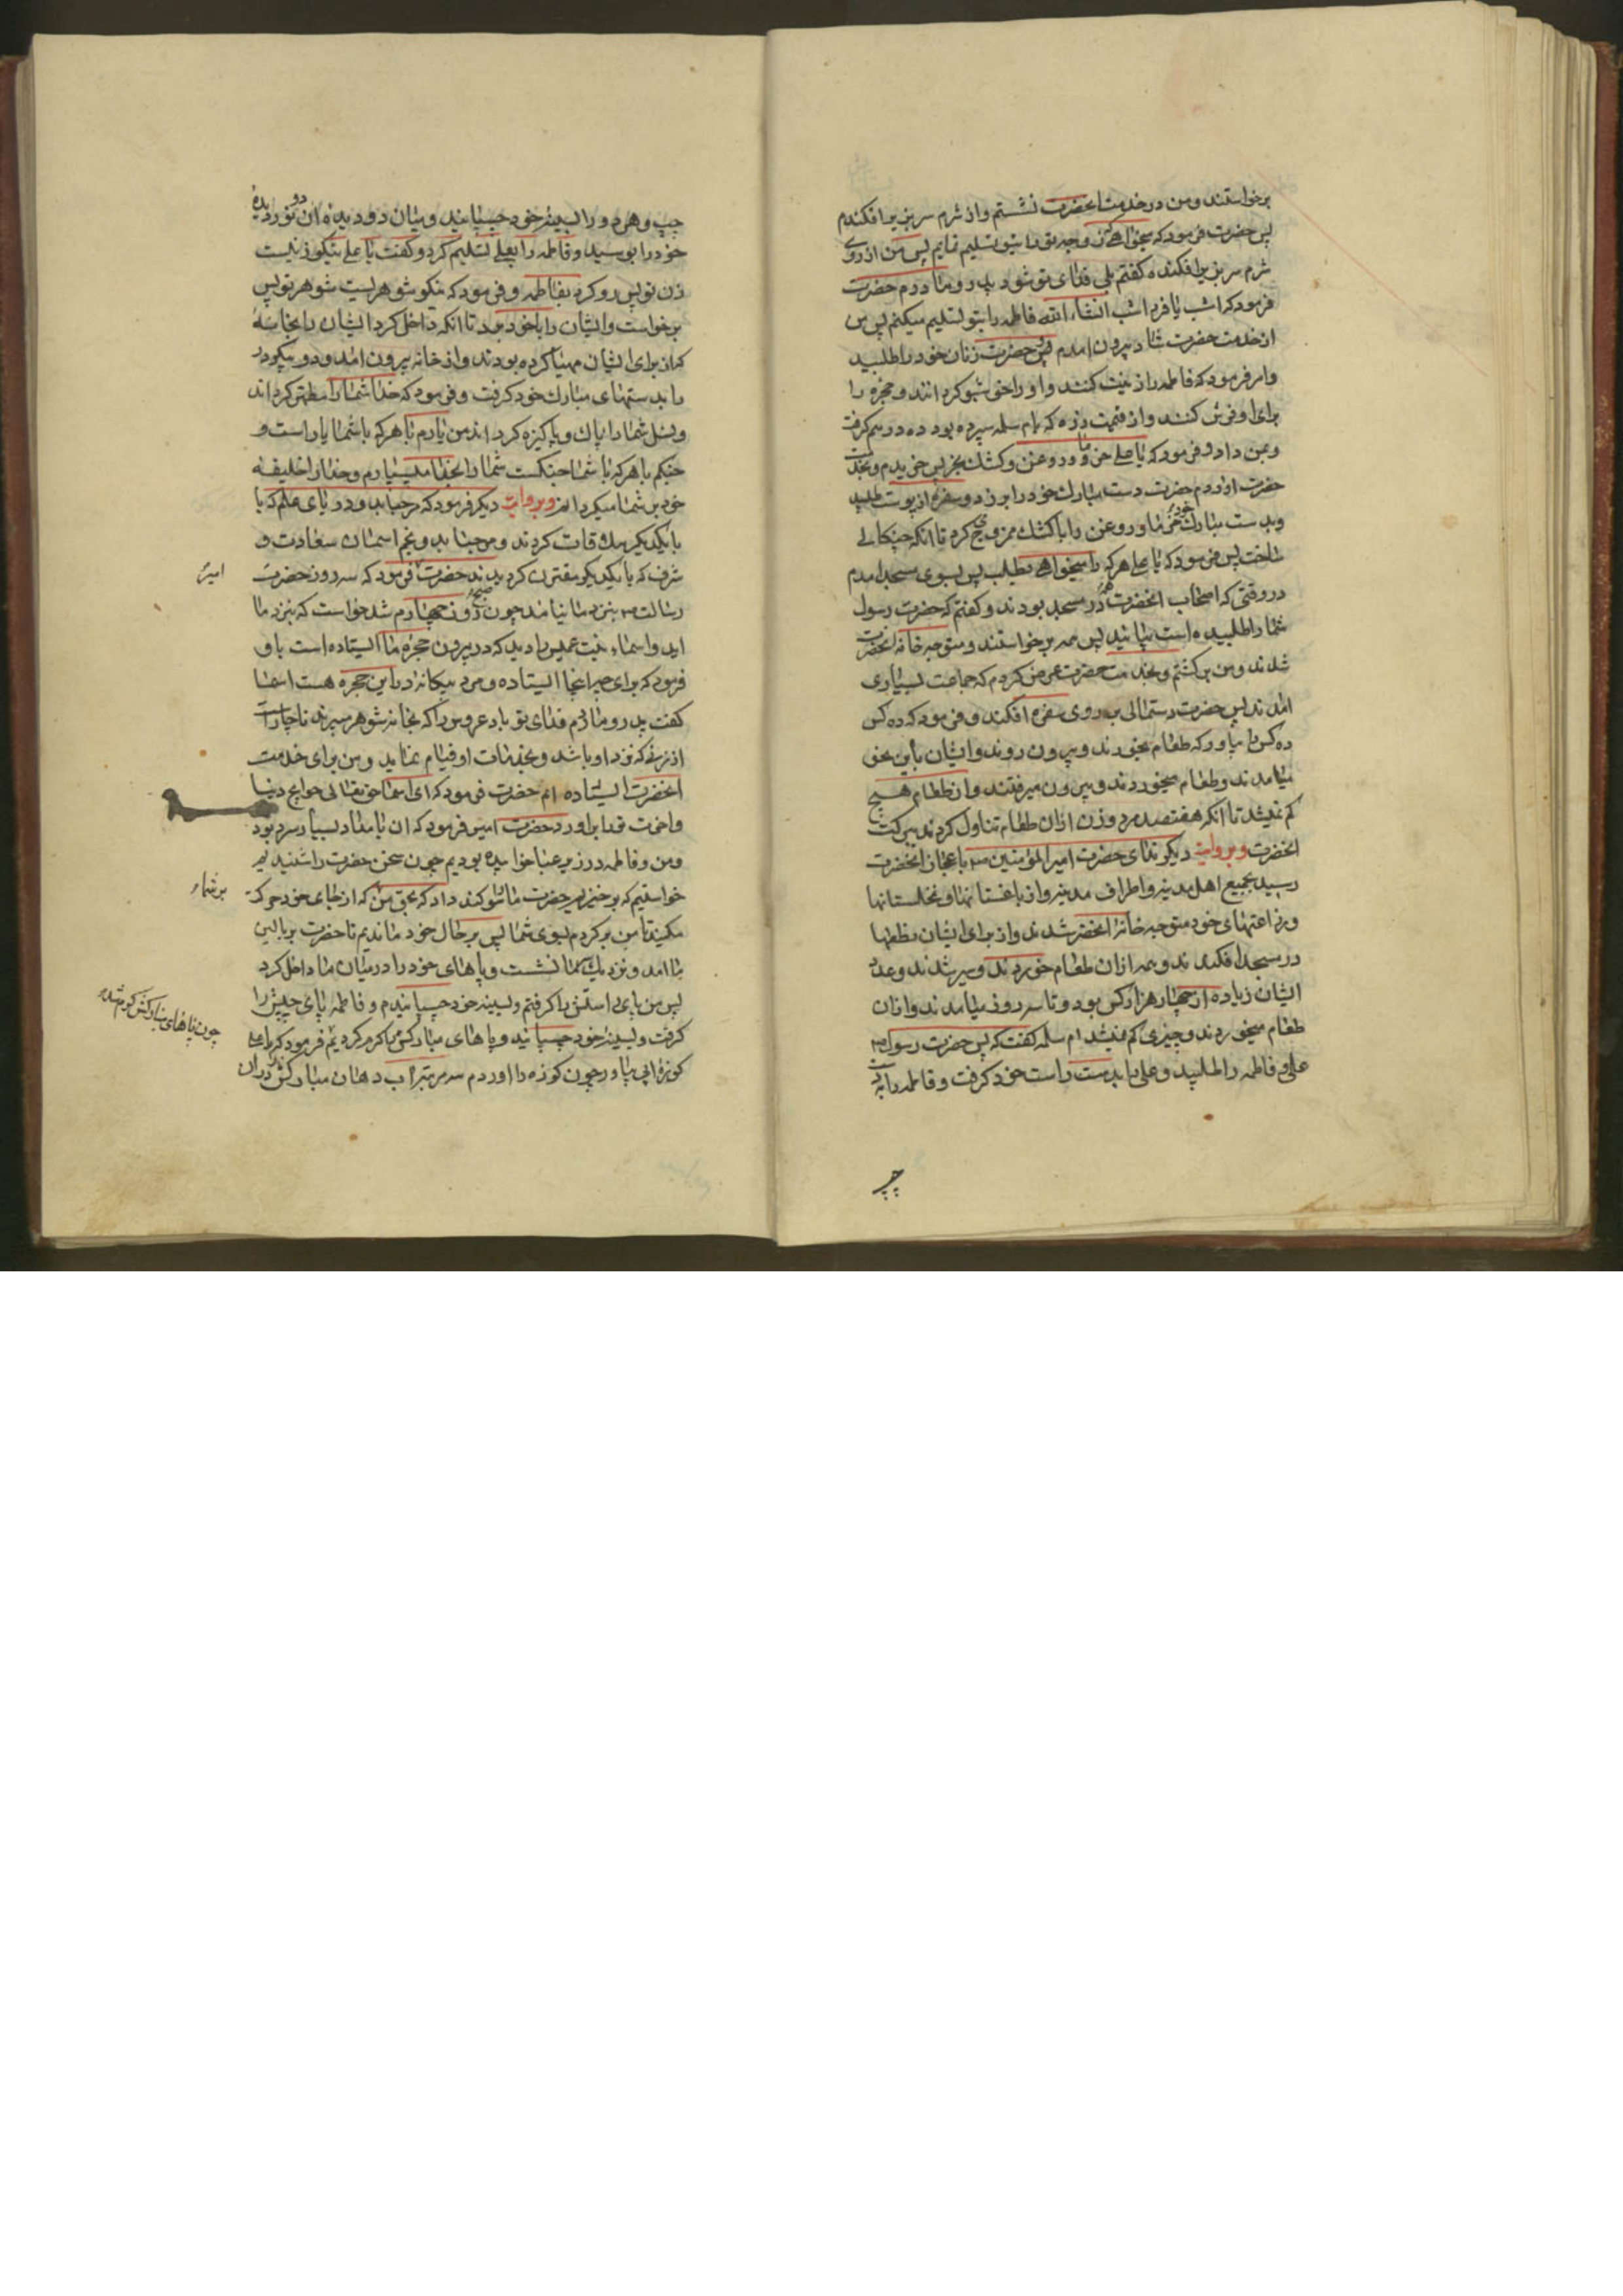 برخواستند و من در خدمت انحضرت نشستم و از شرم سر بزیر افکندم
پس حضرت فرمود که میخواهی زوجه تو را بتو تسلیم نمایم پس من از روی
شرم سر بزیر افکنده گفتم بلی فدای تو شود پدر و مادرم حضرت
فرمود که امشب یا فردا شب انشاء الله فاطمه را بتو تسلیم میکنم پس من
از خدمت حضرت شاد بیرون امدم پس حضرت زنان خود را طلبید
و امر فرمود که فاطمه را زینت کنند و او را خوشبو کردانند و حجره را
برای او فرش کنند و از قیمت زره که بام سلمه سپرده بود ده درهم کرفت
و بمن داد و فرمود که یا علی خرما و روغن و کشک بخر پس خریدم و بخدمت
حضرت اوردم حضرت دست مبارک خود را بر زد و سفره از پوست طلبید
و بدست مبارک خود خرما و روغن را با کشک ممزوج کرد تا انکه چنکالی
ساخت پس فرمود که یا علی هر که را میخواهی بطلب پس بسوی مسجد امدم
در وقتی که اصحاب انحضرت همه در مسجد بودند و کفتم که حضرت رسول
شما را طلبیده است بیائید پس همه برخواستند و متوجه خانه انحضرت
شدند و من برکشتم و بخدمت حضرت عرض کردم که جماعت بسیاری
امدند پس حضرت دستمالی بر روی سفره افکند و فرمود که ده کس
ده کس را بیاور که طعام بخورند و بیرون روند و ایشان باین نحو
میامدند و طعام میخوردند و بیرون میرفتند و ان طعام هیچ
کم نمیشد تا انکه هفتصد مرد و زن از ان طعام تناول کردند ببرکت
انحضرت و بروایت دیکر ندای حضرت امیرالمؤمنین ع باعجاز انحضرت
رسید بجمیع اهل مدینه و اطراف مدینه و از باغستانها و نخلستانها
و زراعتهای خود متوجه خانه انحضرت شدند و از برای ایشان نطعها
در مسجد افکندند و همه از ان طعام خوردند و سیر شدند و عدد
ایشان زیاده از چهار هزار کس بود و تا سه روز میامدند و از ان
طعام میخوردند و چیزی کم نمیشد ام سلمه کفت که پس حضرت رسول ص
علی و فاطمه را طلبید و علی را بدست راست خود کرفت و فاطمه را بدست
چپ
چپ و هر دو را بسینه خود چسبانید و میان دو دیده ان دو نور دیده
خود را بوسید و فاطمه را بعلی تسلیم کرد و کفت یا علی نیکو زنیست
زن تو پس رو کرد بفاطمه و فرمود که نیکو شوهریست شوهر تو پس
برخواست و ایشان را با خود برد تا انکه داخل کرد ایشان را بخانه
که از برای ایشان مهیا کرده بودند و از خانه بیرون امد و دو پیکر در
را بدستهای مبارک خود کرفت و فرمود که خدا شما را مطهر کرداند
و نسل شما را پاک و پاکیزه کرداند من یارم با هر که با شما یار است و
جنکم با هر که با شما جنکست شما را بخدا میسپارم و خدا را خلیفه
خود بر شما میکردانم و بروایت دیکر فرمود که مرحبا بدو دریای علم که با
یکدیکر ملاقات کردند و مرحبا بدو نجم اسمان سعادت و
شرف که با یکدیکر مقترن کردیدند حضرت امیر ع فرمود که سه روز حضرت
رسالت ص بنزد ما نیامد چون صبح روز چهارم شد خواست که بنزد ما
اید و اسماء بنت عمیس را دید که در بیرون حجره ما ایستاده است باو
فرمود که برای چه اینجا ایستاده و مرد بیکانه در این حجره هست اسما
کفت پدر و مادرم فدای تو باد عروس را که بخانه شوهر میبرند ناچار است
از زنی که نزد او باشد و بخدمات او قیام نماید و من برای خدمت
انحضرت ایستاده ام حضرت فرمود که ای اسما حق تعالی حوایج دنیا
و اخرت تو را براورد حضرت امیر فرمود که ان بامداد بسیار سرد بود
و من و فاطمه در زیر عبا خوابیده بودیم چون سخن حضرت را شنیدیم
خواستیم که برخیزیم حضرت ما را سوکند داد که بحق من بر شما که از جای خود حرکت
مکنید تا من برکردم بسوی شما پس بر حال خود ماندیم تا حضرت بر بالین
ما امد و نزدیک ما نشست و پاهای خود را در میان ما داخل کرد
پس من پای راستش را کرفتم و بسینه خود چسبانیدم و فاطمه پای چپش را
کرفت و بسینه خود چسبانید و پاهای مبارکش را کرم کردیم چون پاهای مبارکش کرم شد فرمود که یا علی
کوزه ابی بیاور چون کوزه را اوردم سه مرتبه اب دهان مبارکش در ان